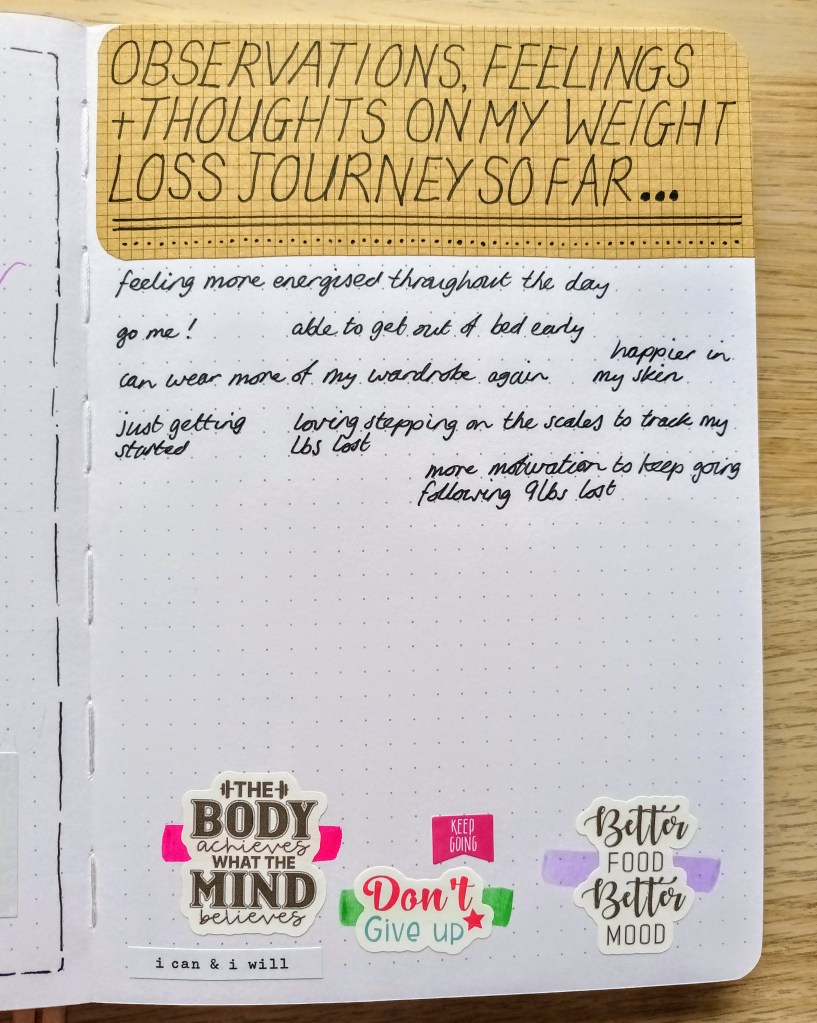 OBSERVATIONS, FEELINGS
+ THOUGHTS ON MY WEIGHT
LOSS JOURNEY SO FAR...
feeling more energised throughout the day
go me!
able to get out of bed early
can wear more of my wardrobe again
happier in
my skin
just getting
started
loving stepping on the scales to track my
lbs lost
more motivation to keep going
following 9lbs lost
THE
BODY
achieves
WHAT THE
MIND
believes
KEEP
GOING
Don't
Give up
Better
FOOD
Better
MOOD
i can & i will